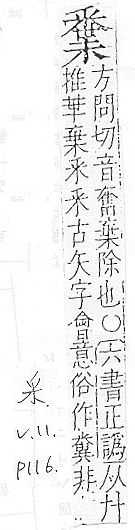 方問切音奮棄除也〇六書正譌从廾
推華棄釆釆古矢字會意俗作糞非
釆.
v.11.
P116.